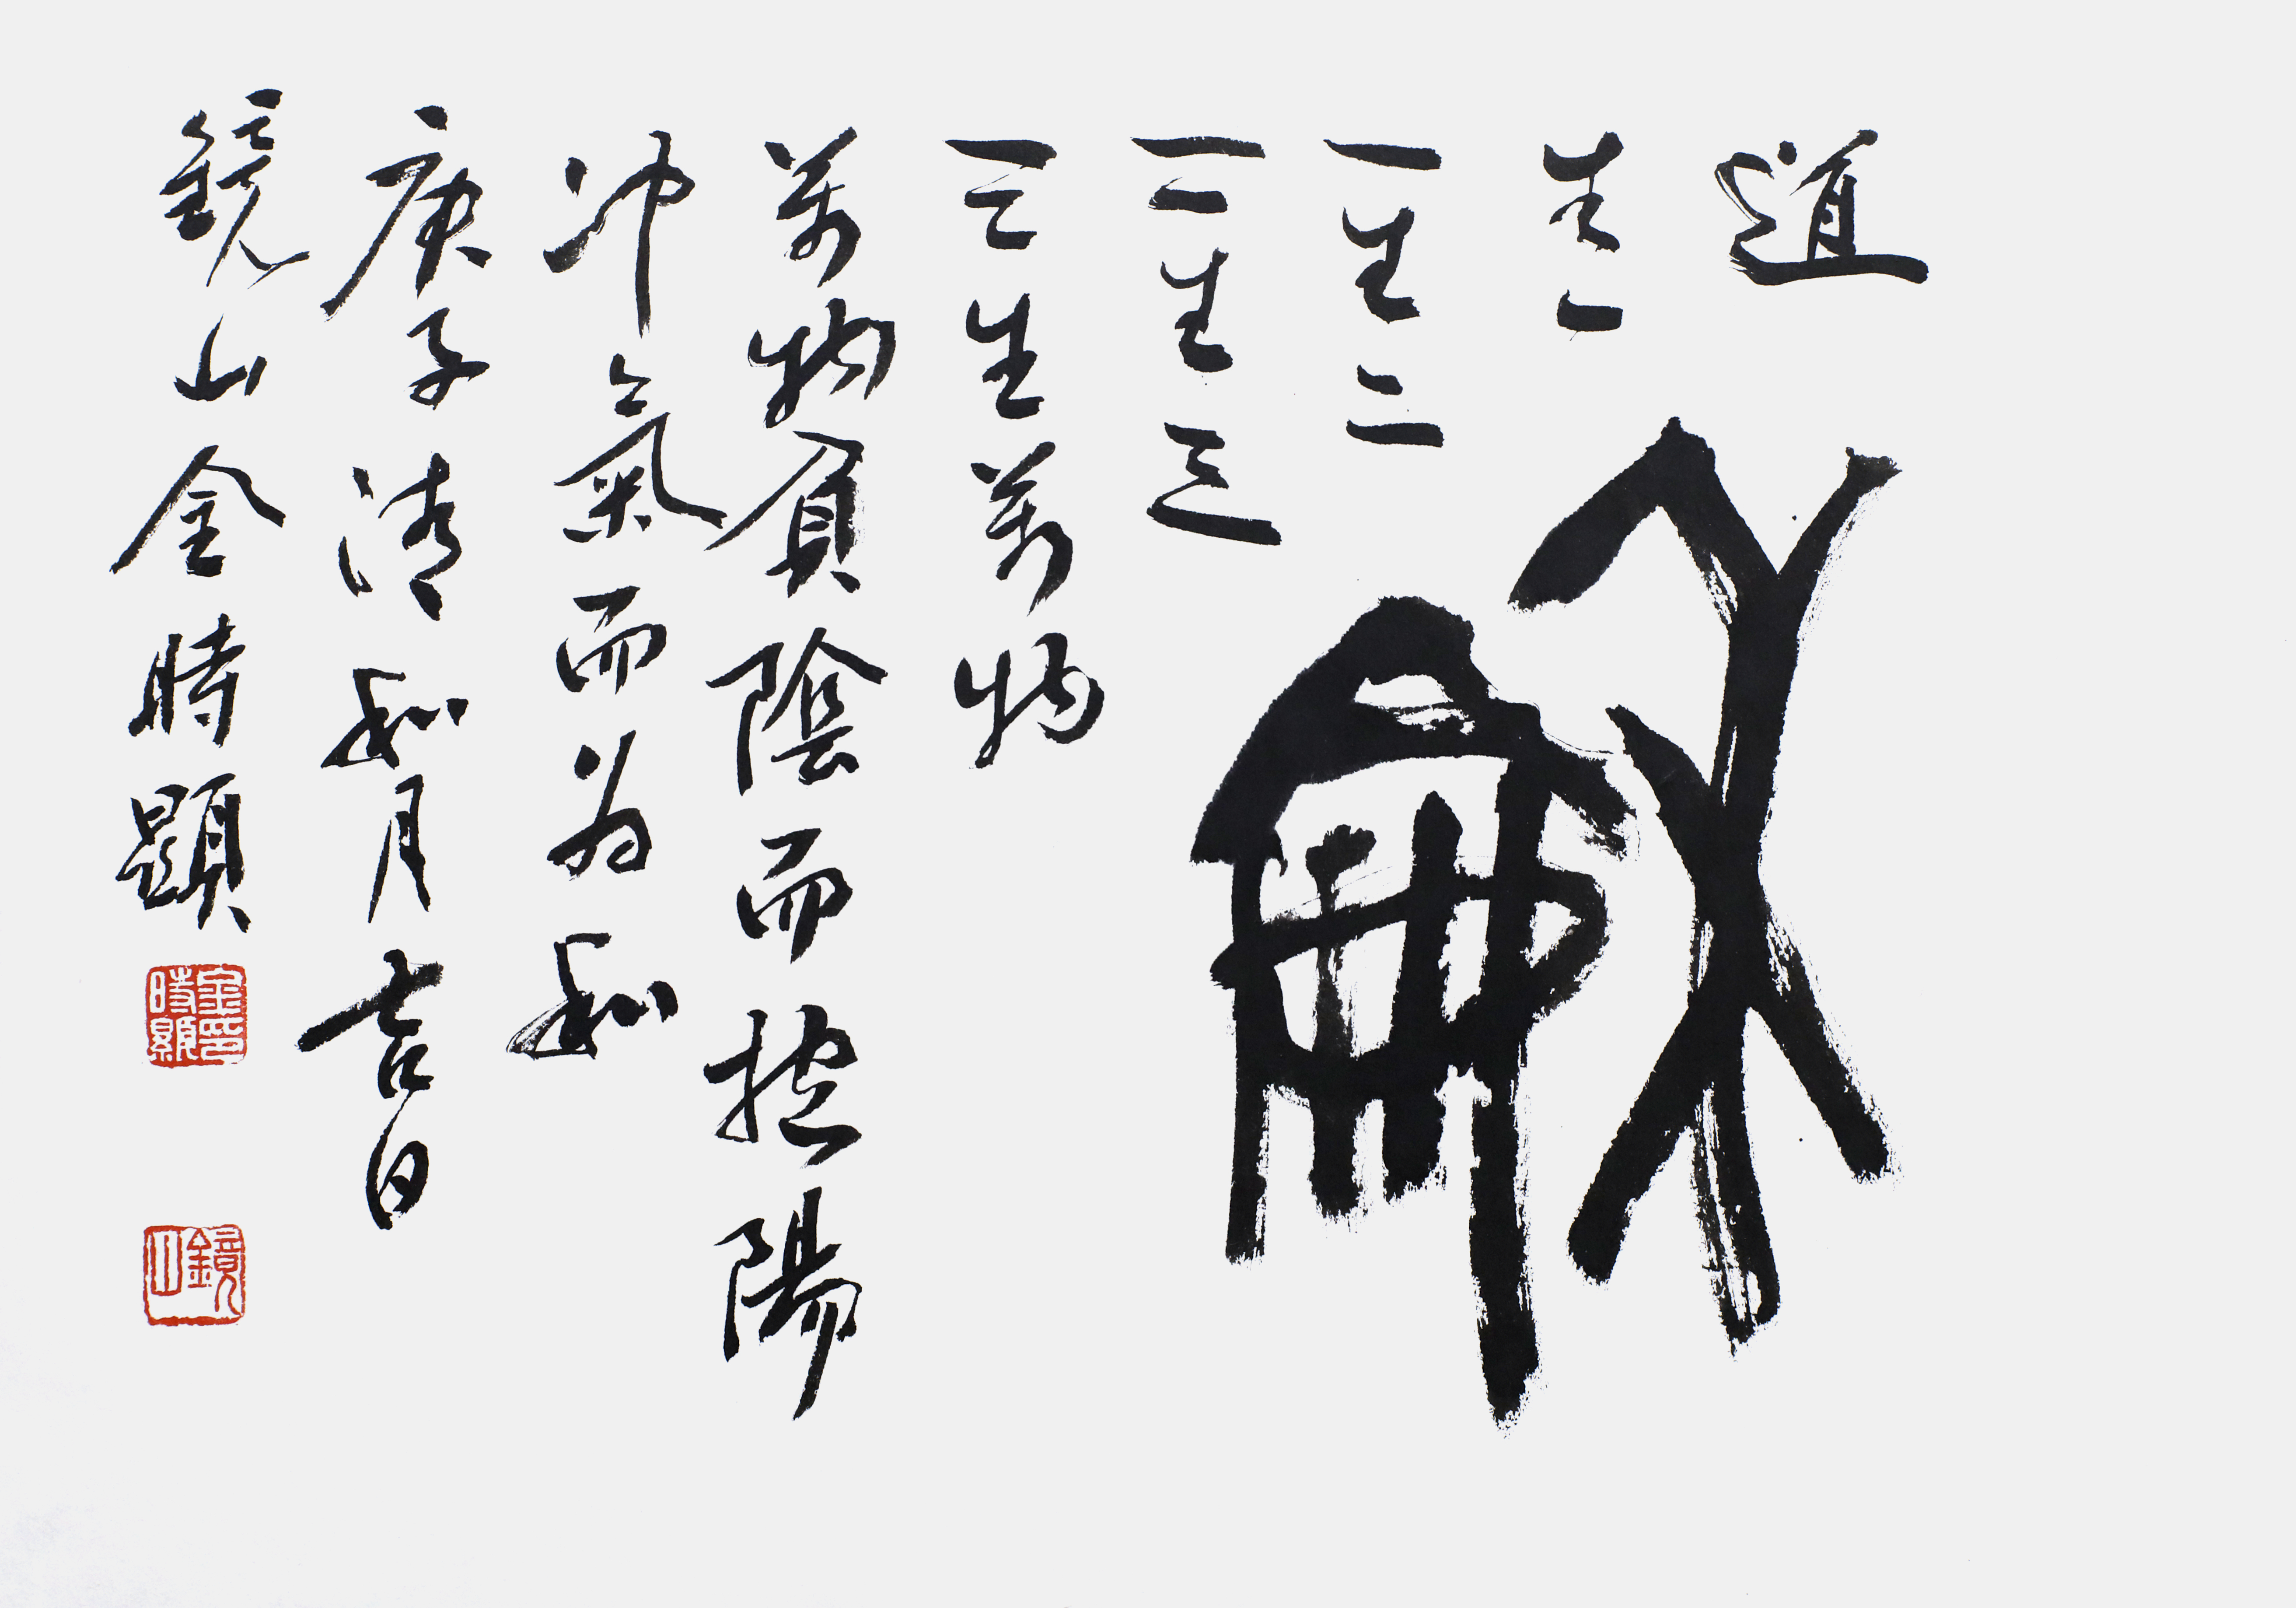 龢
道
生一
一生二
二生三
三生萬物
萬物負陰而抱陽
冲氣而為和
庚子清和月吉日
鏡山金時顯
金印時顯
鏡山